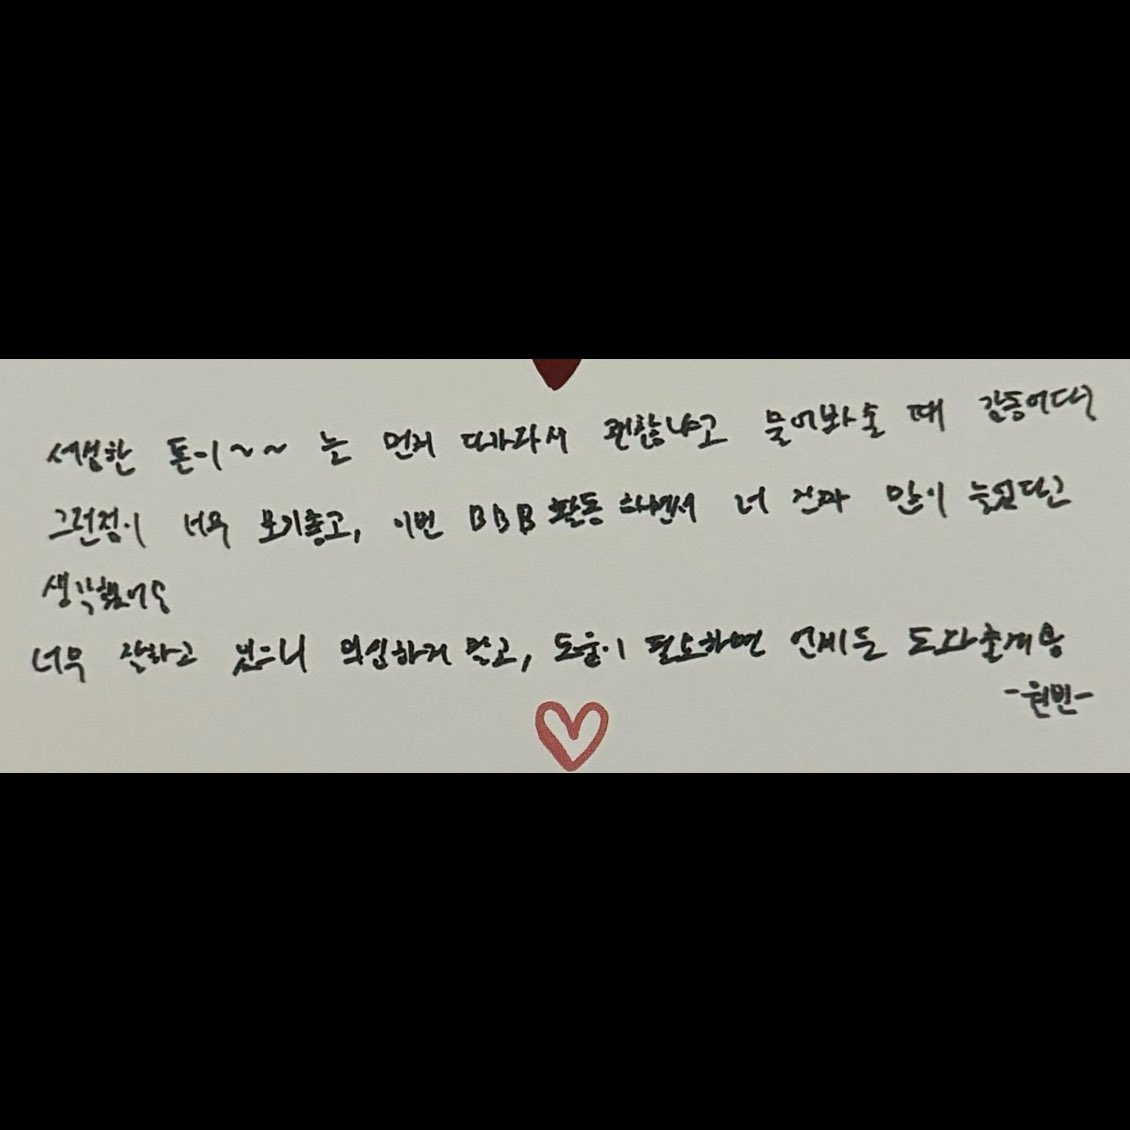 섬세한 톤이~~ 는 먼저 다가와서 괜찮냐고 물어봐줄 때 감동이다?
그런점이 너무 보기좋고, 이번 BBB 활동 하면서 너 진짜 많이 늘었다고
생각했어요
너무 잘하고 있으니 의심하지 말고, 도움이 필요하면 언제든 도와줄게용
-원빈-